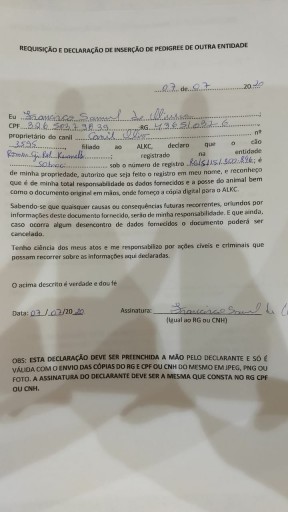 REQUISIÇÃO E DECLARAÇÃO DE INSERÇÃO DE PEDIGREE DE OUTRA ENTIDADE
07 de 07 2020
Eu Francisco
CPF RG
proprietário do canil Canil nº
3595, filiado ao ALKC, declaro que o cão
registrado na entidade
sob o número de registro é
de minha propriedade, autorizo que seja feito o registro em meu nome, e reconheço
que é de minha total responsabilidade os dados fornecidos e a posse do animal bem
como o documento original em mãos, onde forneço a cópia digital para o ALKC.
Sabendo-se que quaisquer causas ou consequências futuras recorrentes, oriundos por
informações deste documento fornecido, serão de minha responsabilidade. E que ainda,
caso ocorra algum desencontro de dados fornecidos o documento poderá ser
cancelado.
Tenho ciência dos meus atos e me responsabilizo por ações cíveis e criminais que
possam recorrer sobre as informações aqui declaradas.
O acima descrito é verdade e dou fé
Data: 07/07/2020 Assinatura: Francisco
(Igual ao RG ou CNH)
OBS: ESTA DECLARAÇÃO DEVE SER PREENCHIDA A MÃO PELO DECLARANTE E SÓ É
VÁLIDA COM O ENVIO DAS CÓPIAS DO RG E CPF OU CNH DO MESMO EM JPEG, PNG OU
FOTO. A ASSINATURA DO DECLARANTE DEVE SER A MESMA QUE CONSTA NO RG CPF
OU CNH.